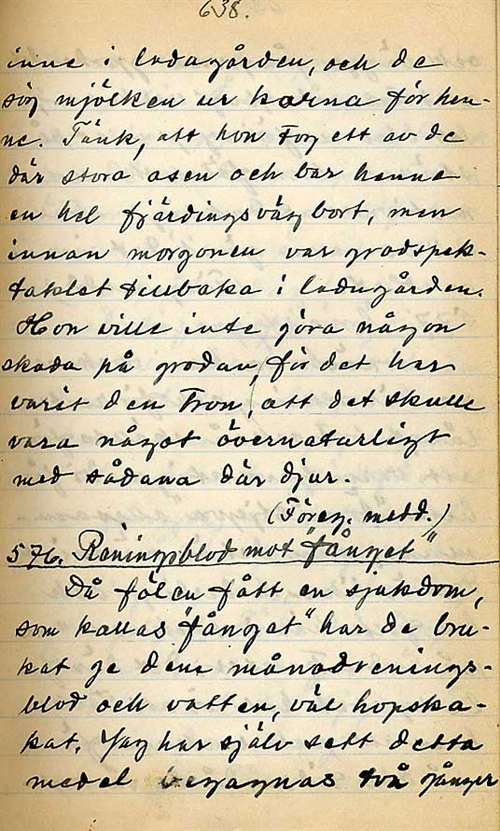 638.
inne i ladugården, och de
sög mjölken ur korna för hen-
ne. Tänk, att hon tog ett av de
där stora asen och bar henne
en hel fjärdingsväg bort, men
innan morgonen var grodspek-
taklet tillbaka i ladugården.
Hon ville inte göra någon
skada på grodan, för det har
varit den tron, att det skulle
vara något övernaturligt
med sådana där djur.
(Föreg. medd.)
576. Reningsblod mot "fånget"
Då fölen fått en sjukdom,
som kallas "fånget" har de bru-
kat ge dem månadsrenings-
blod och vatten, väl hopska-
kat. Jag har själv sett detta
medel begagnas två gånger